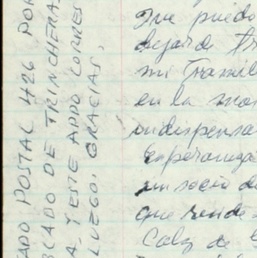 ADO POSTAL 426 POR
CADO DE TRINCHERAS
A, Y ESTE APDO CORRES
LUEGO. GRACIAS,
que puedo
dejar de
mi
en la
indispensa
esperanza
un socio de
que vende
de